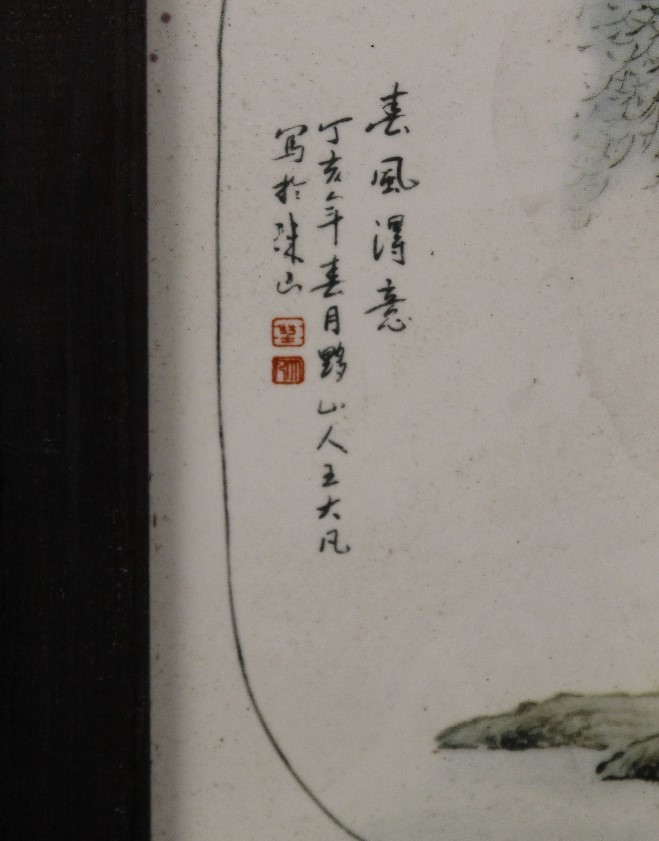 春風得意
丁亥年春月黟山人王大凡
写於珠山